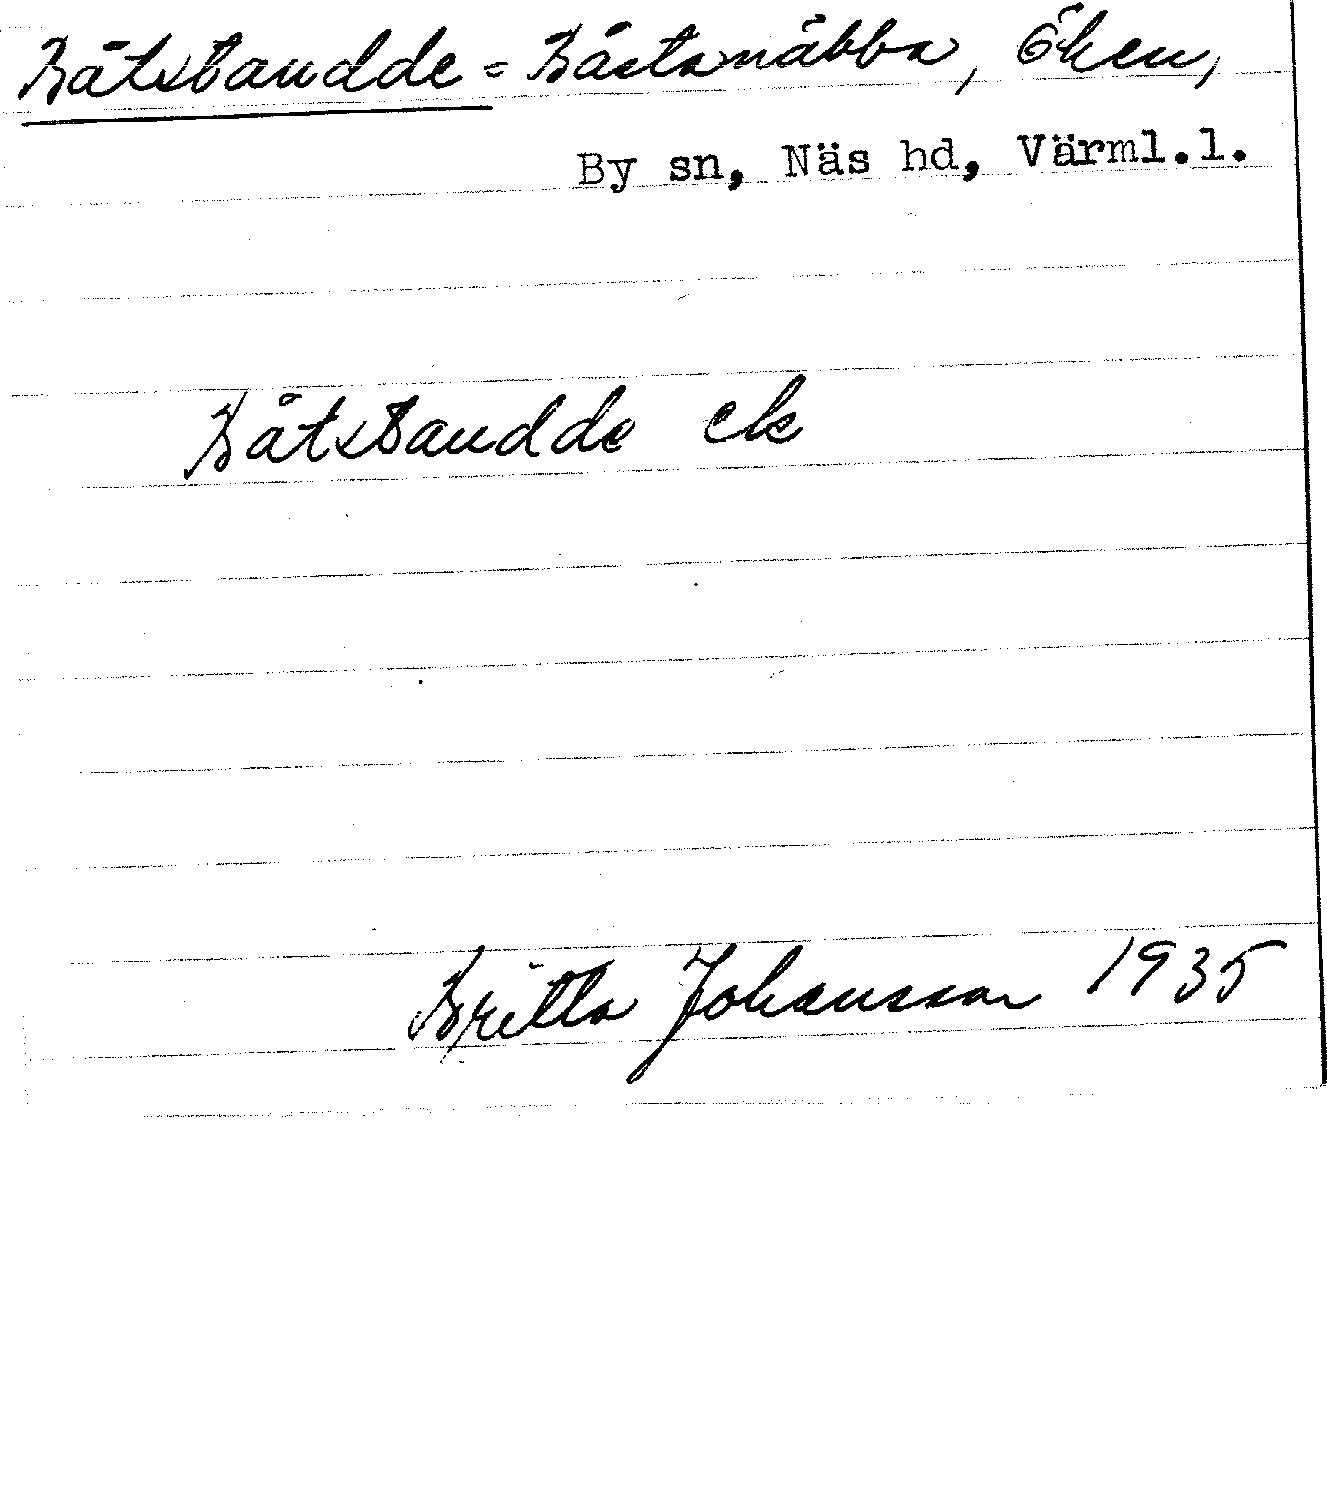 Båtstaudde = Båstanäbba, öken,
By sn, Näs hd, Värml.l.
Båtstaudde ek
Britta Johansson 1935